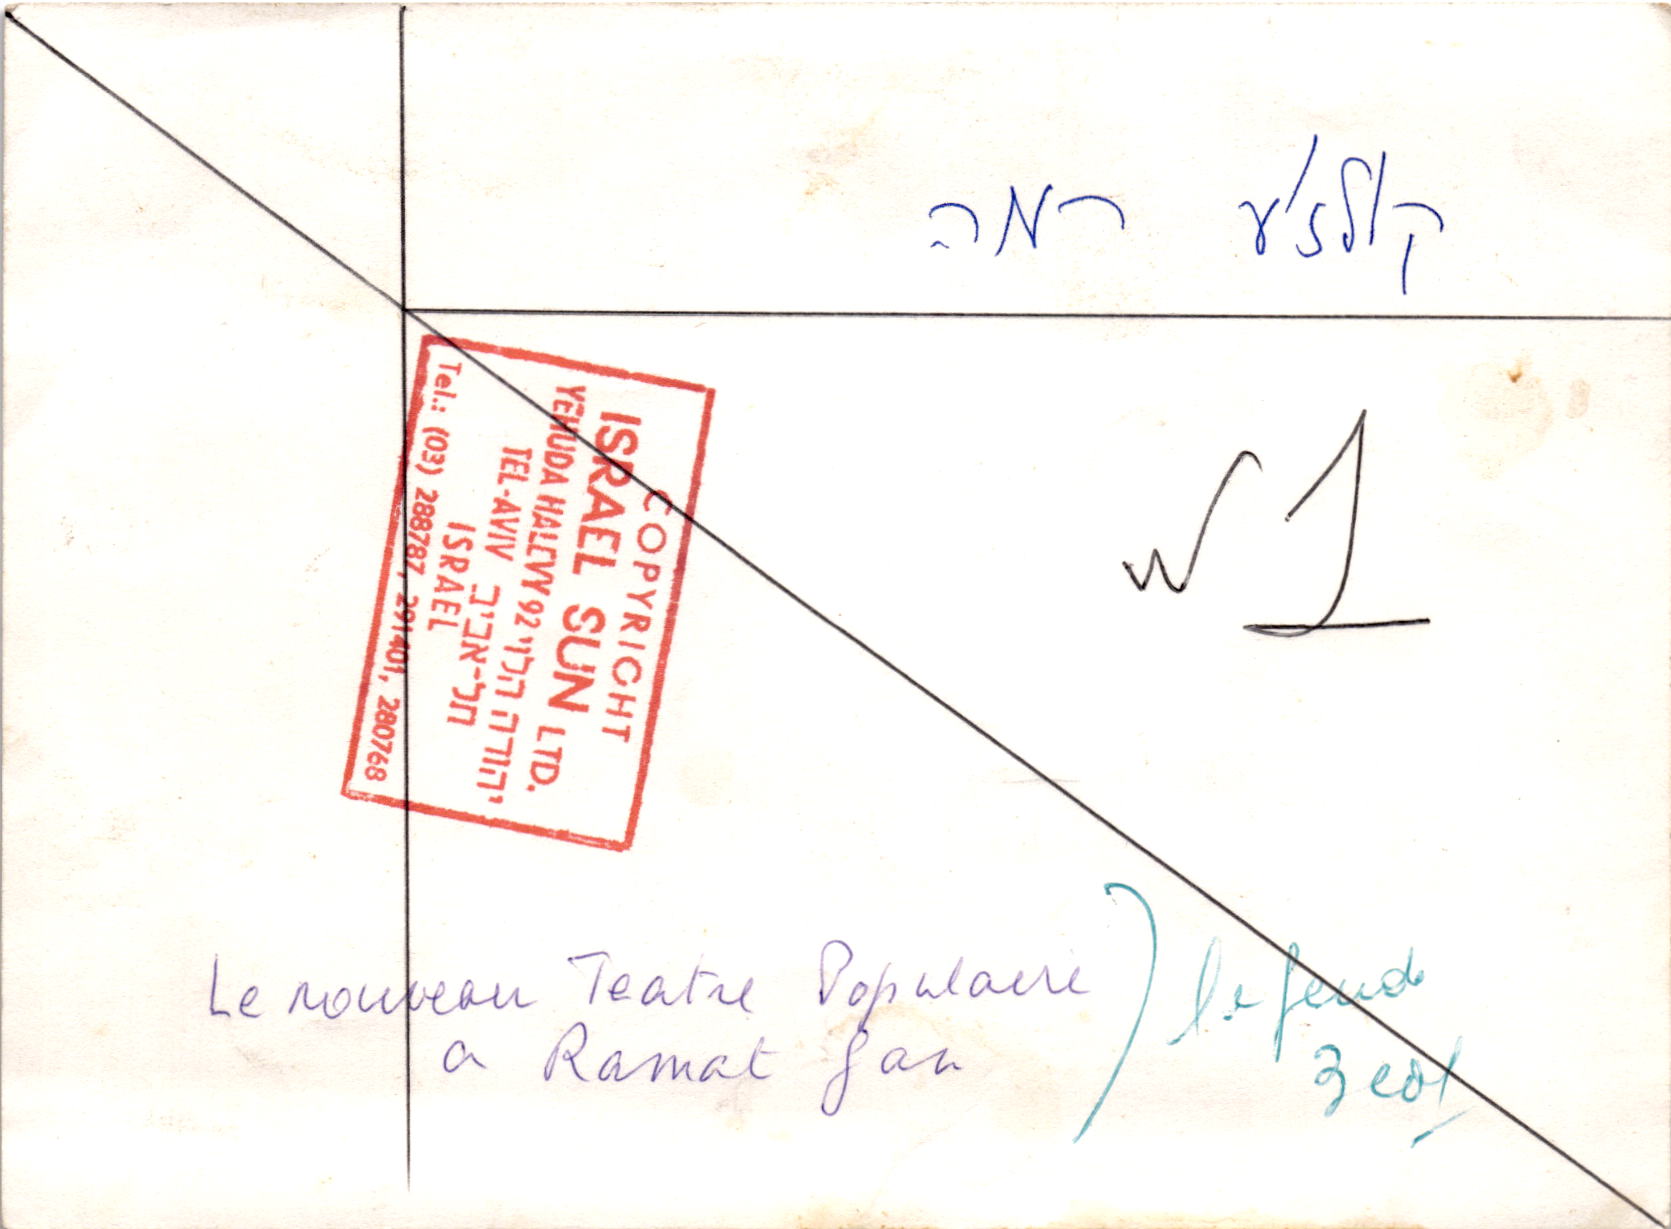 קולנוע רמה
1
COPYRIGHT
ISRAEL SUN LTD.
YEHUDA HALEVY 92 יהודה הלוי
TEL-AVIV תל-אביב
ISRAEL
Tel.: (03) 288787, 291401, 280768
Le nouveau Teatre Populaire
a Ramat Gan
legende
3 col